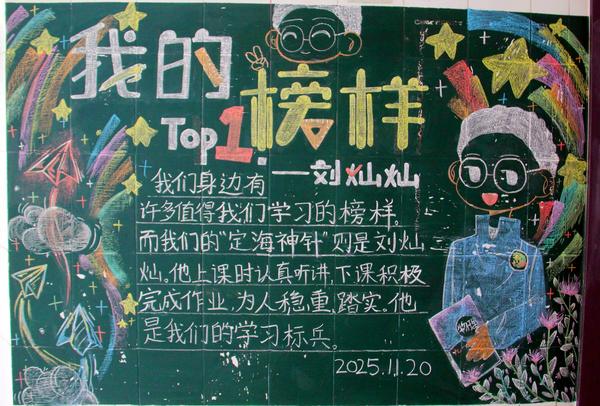 我的榜样
Top1.
——刘灿灿
我们身边有
许多值得我们学习的榜样。
而我们的“定海神针”则是刘灿
灿。他上课时认真听讲,下课积极
完成作业,为人稳重,踏实。他
是我们的学习标兵。
2025.11.20